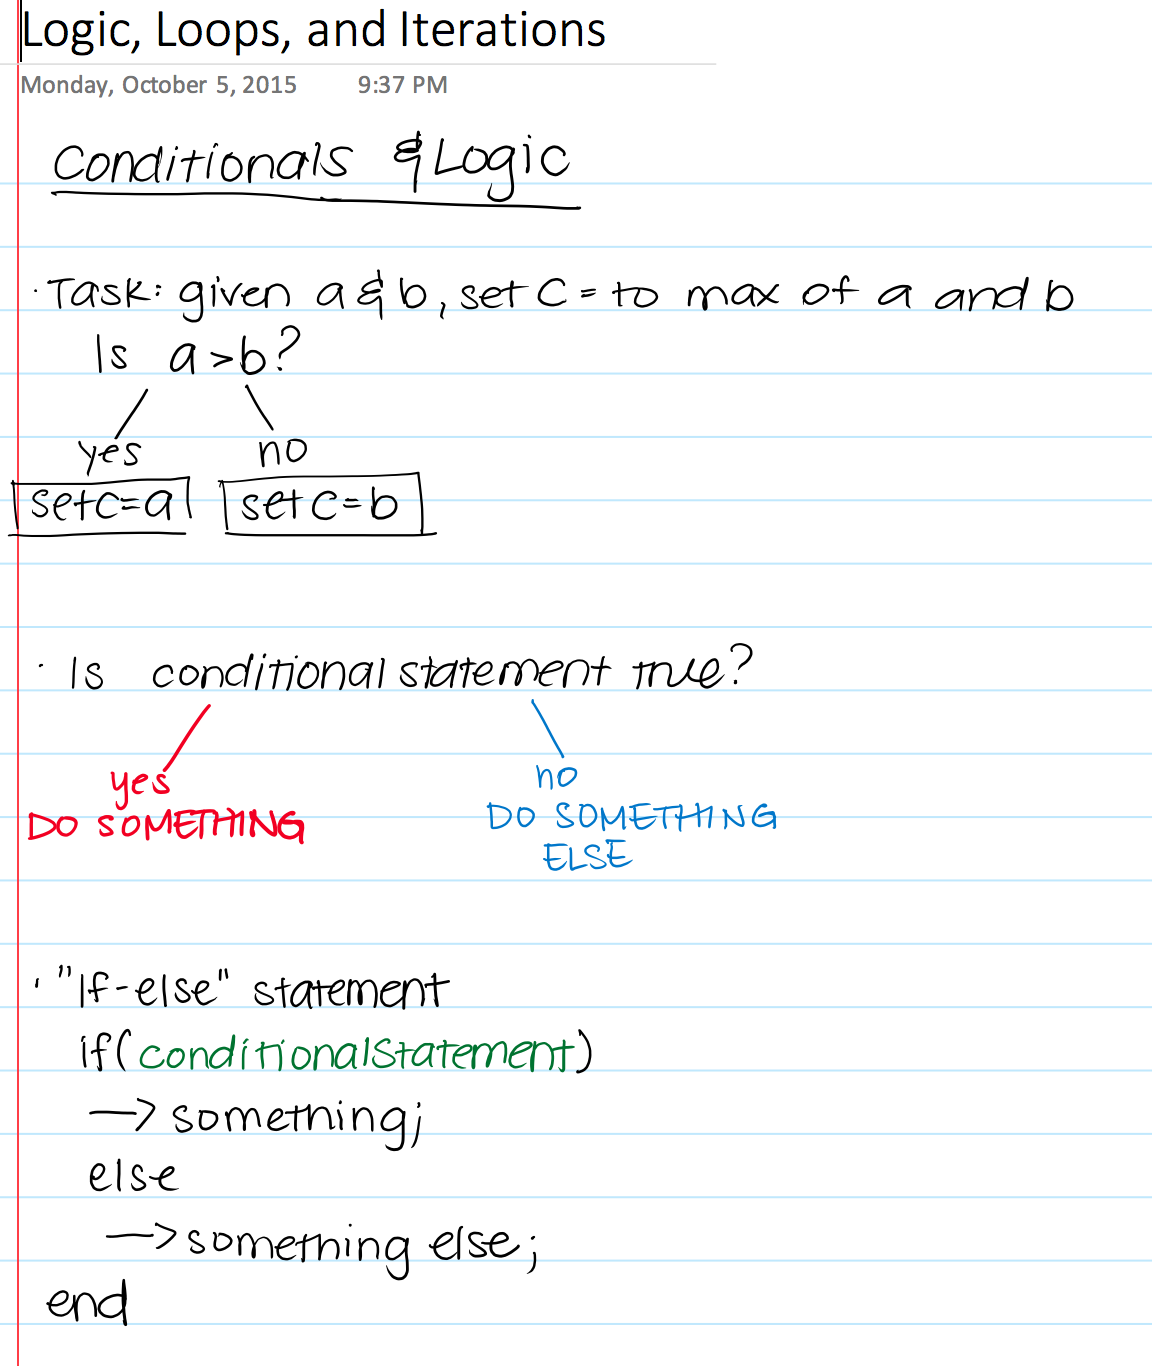 Logic, Loops, and Iterations
Monday, October 5, 2015 9:37 PM
Conditionals & Logic
· Task: given a & b, set c = to max of a and b
Is a > b?
yes no
set c = a set c = b
· Is conditional statement true?
yes no
DO SOMETHING DO SOMETHING
ELSE
· "If-else" statement
if(conditionalStatement)
→ something;
else
→ something else;
end